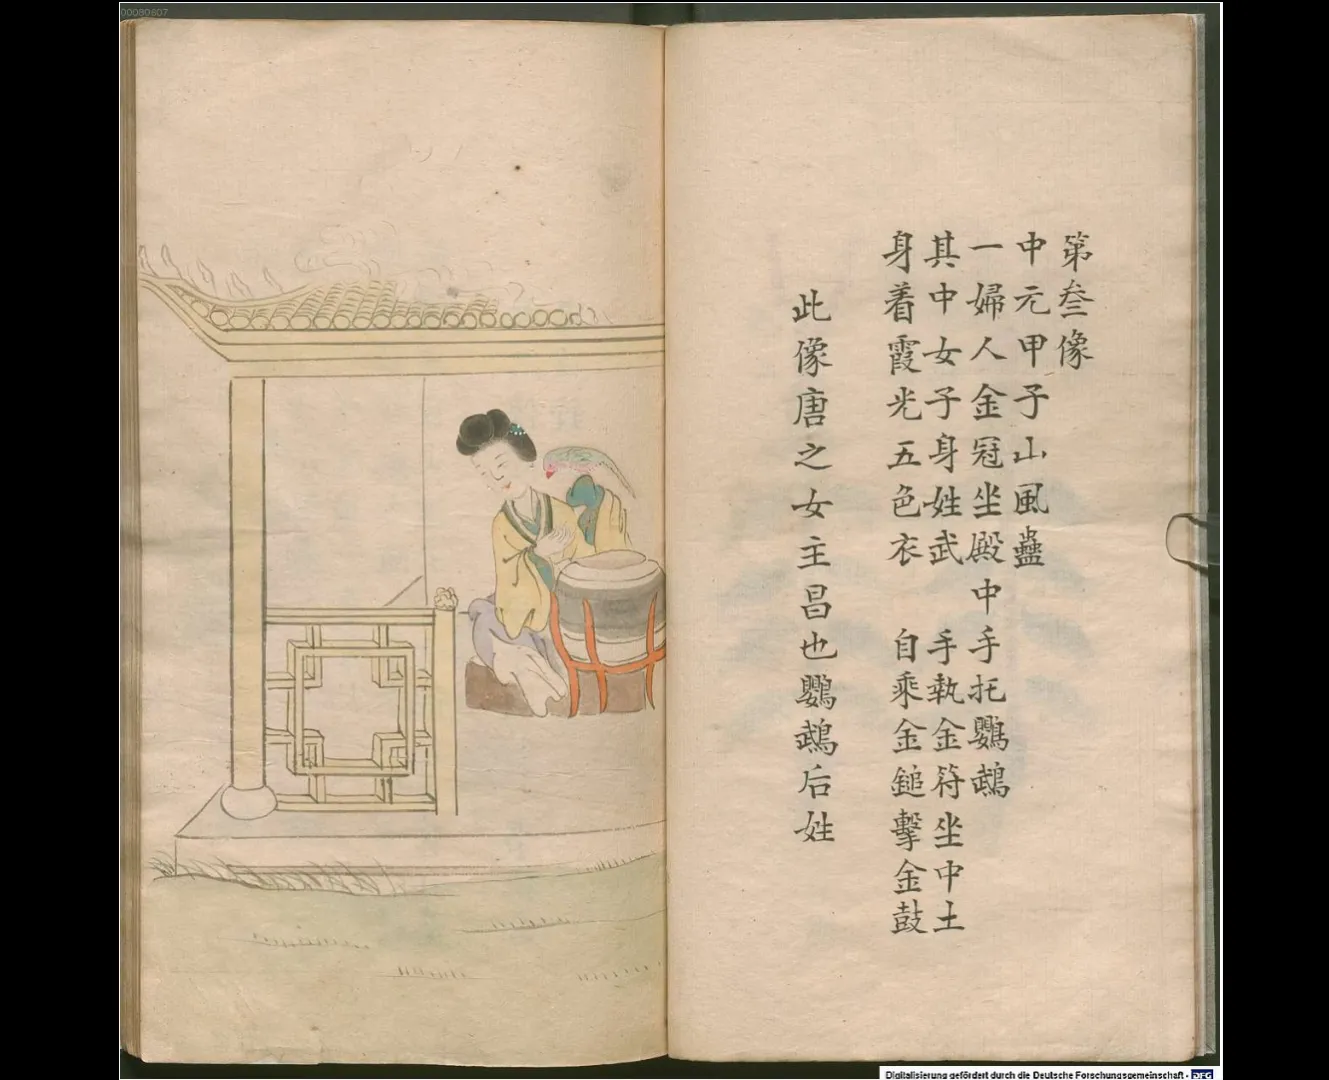 第叄像
中元甲子山風蠱
一婦人金冠坐殿中手托鸚鵡
其中女子身姓武　手執金符坐中土
身着霞光五色衣　自乘金鎚擊金鼓
此像唐之女主昌也鸚鵡后姓
00080807
Digitalisierung gefördert durch die Deutsche Forschungsgemeinschaft - DFG